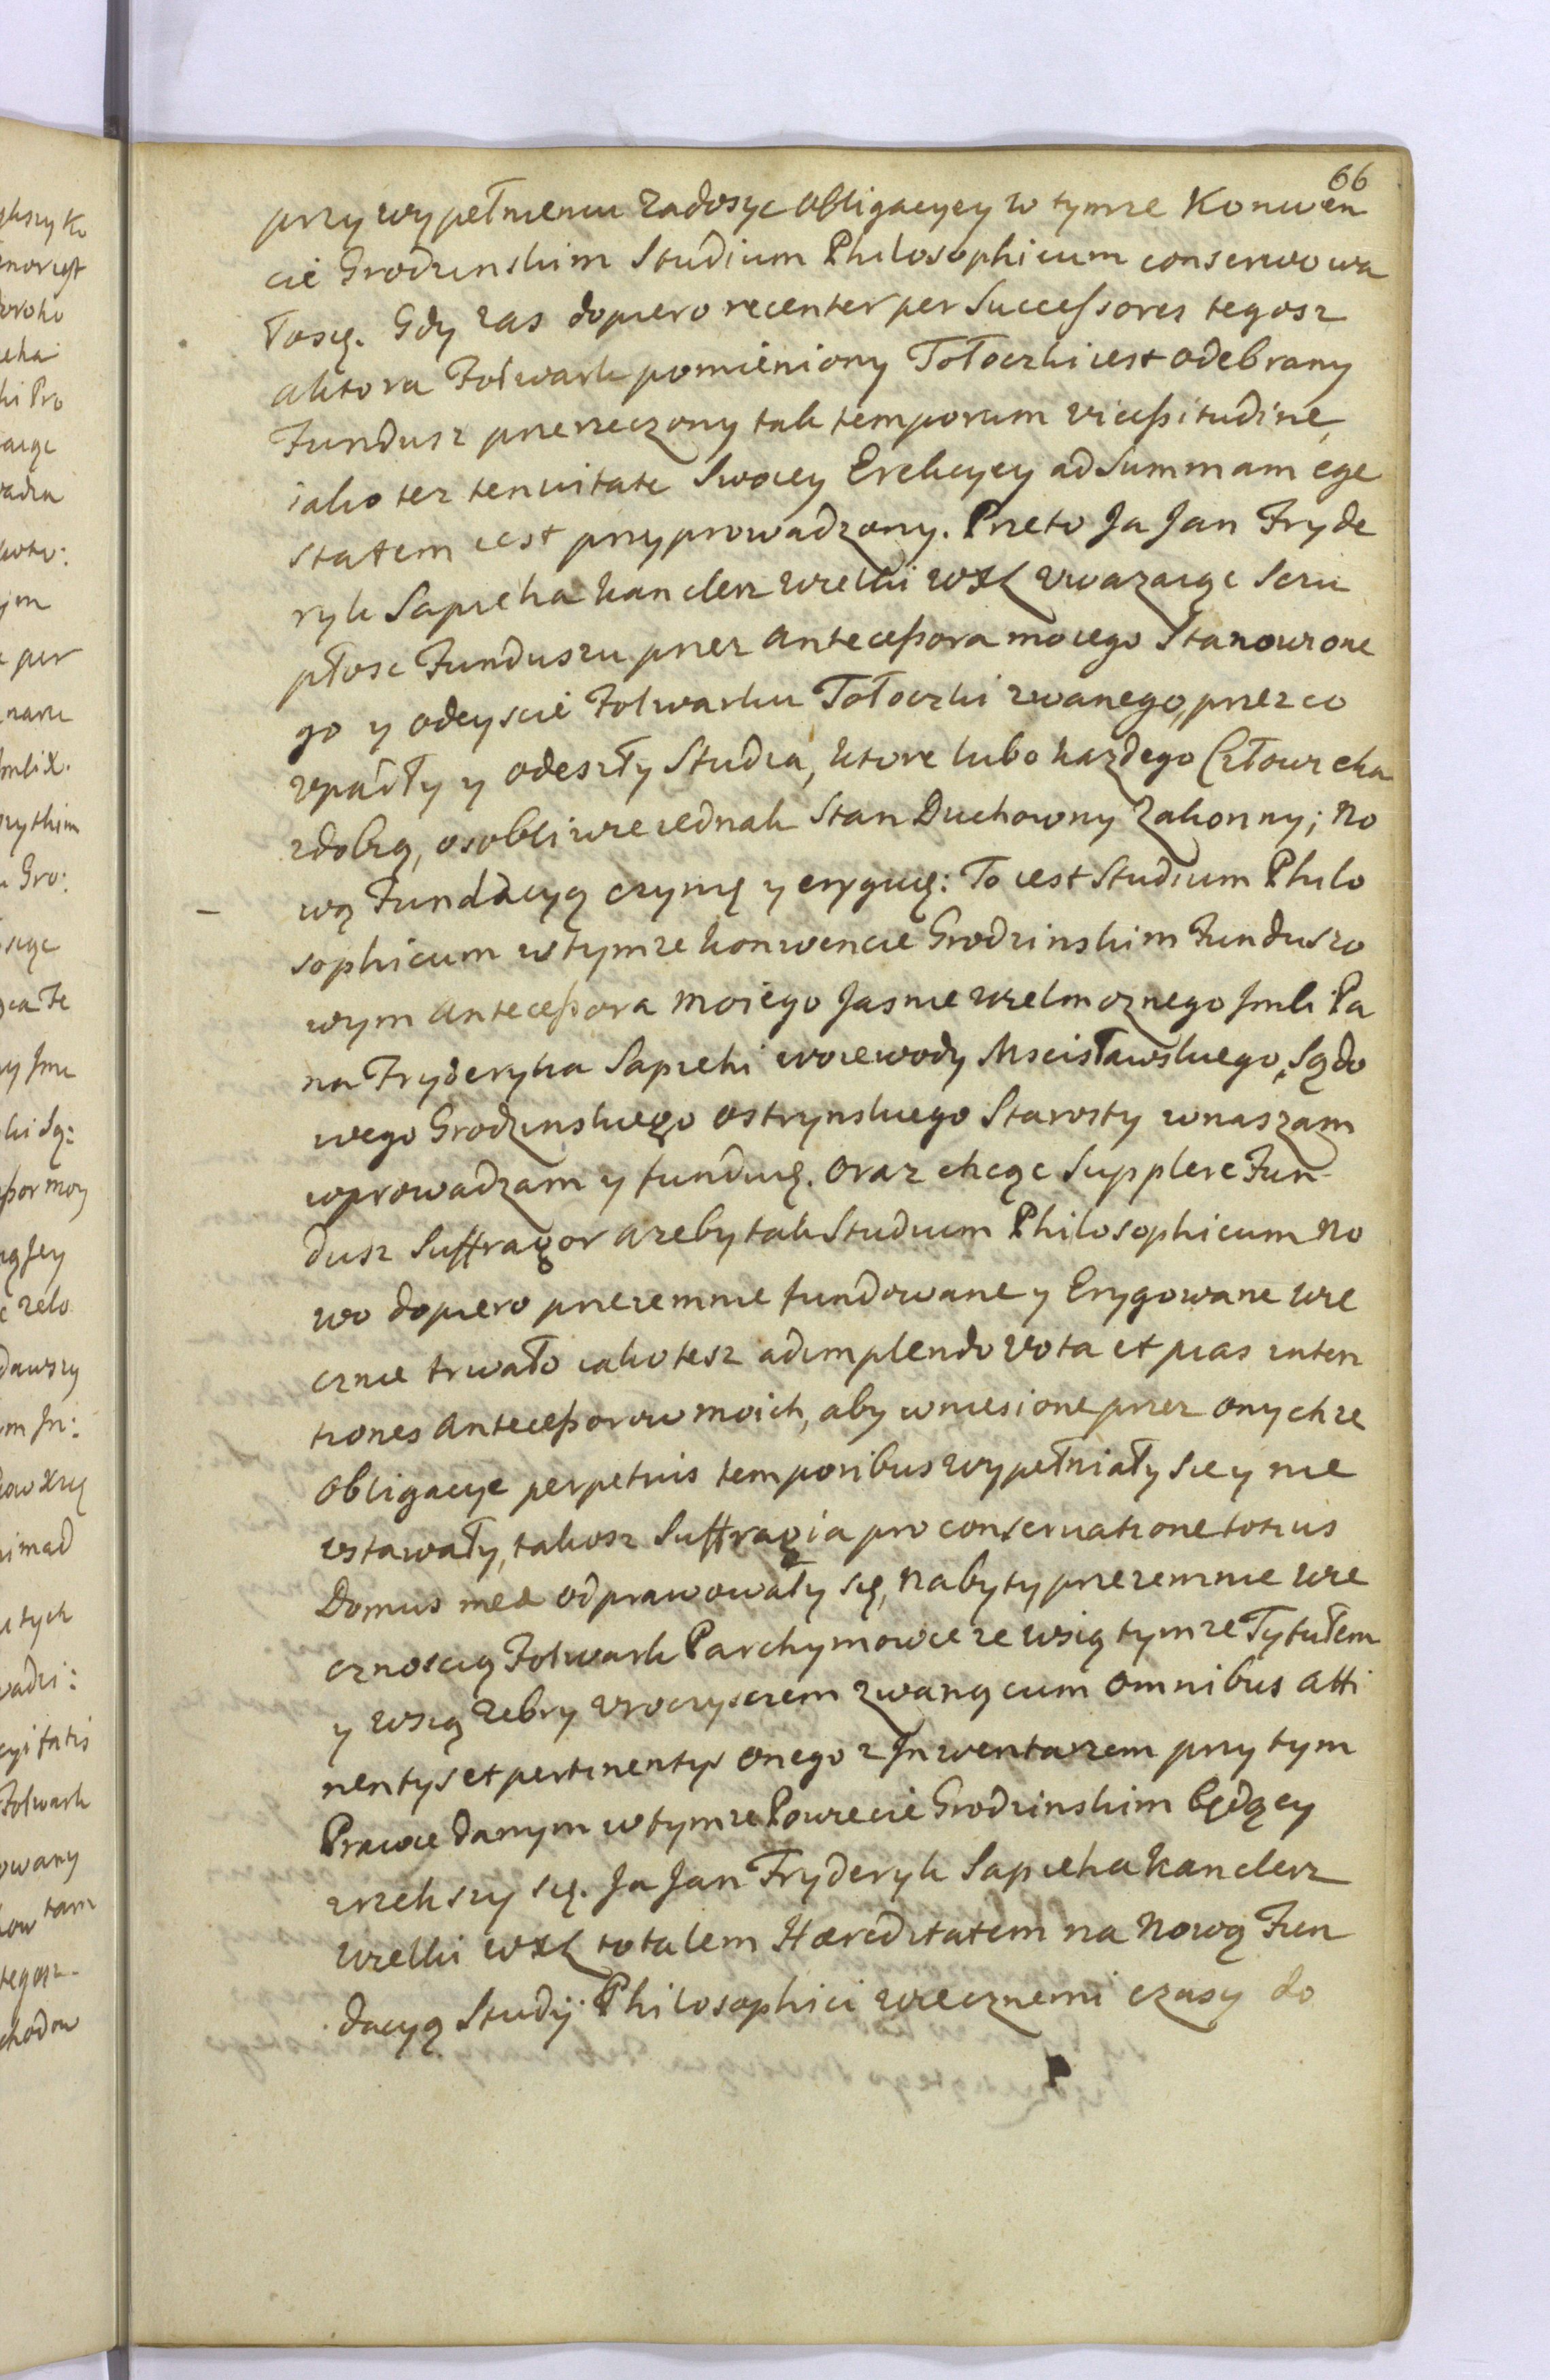 66
przy wypełnieniu zadosyc obligacyey w tymze Konwen
cie Grodzinskim Studium Philosophicum conserwowa
łosię. Gdy zas dopiero recenter per Successores tegosz
aktora Folwark pomieniony Tołoczki iest odebrany
Fundusz przerzeczony tak temporum vicißitudine,
iako tez tenuitate Swoiey Erekcyey ad Summam ege
statem iest przyprowadzony. Przeto Ja Jan Fryde
ryk Sapieha kanclerz Wielki WXL vwazaiąc Scru
płosc Funduszu przez Anteceßora moiego Stanowione
go y odeyscie Folwarku Tołoczki zwanego, przez co
vpadły y odeszły Studia, ktore lubo kazdego Człowieka
zdobią, osobliwie iednak Stan Duchowny Zakonny; No
wą Fundacyą czynię y eryguię: To iest Studium Philo
sophicum w tymze konwencie Grodzinskim Funduszo
wym Anteceßora moiego Jasnie Wielmoznego Jmći Pa
na Fryderyka Sapiehi Woiewody Mscisławskiego, Sądo
wego Grodzinskiego Ostrynskiego Starosty wnaszam
wprowadzam y funduię. Oraz chcąc Supplere Fun
dusz Suffragor azeby tak Studium Philosophicum No
wo dopiero przezemnie fundowane y Erygowane wie
cznie trwało iakotesz adimplendo vota et pias inten
tiones Anteceßorow moich, aby wniesione przez onychze
Obligacye perpetuis temporibus wypełniały się y nie
vstawały, takosz Suffragia pro conservatione totius
Domus mea odprawowały się, Nabyty przezemnie wie
cznoscią Folwark Parchymowce ze wsią tymze Tytułem
y wsią Zebry vroczysczem zwaną cum Omnibus Atti
nentys et pertinentys onego z Jnwentarzem przy tym
Prawie danym w tymze Powiecie Grodzinskim będący
zrzekszy się. Ja Jan Fryderyk Sapieha Kanclerz
Wielki WXL totalem Hæreditatem na Nową Fun
dacyą Studij Philosophici wiecznemi czasy do